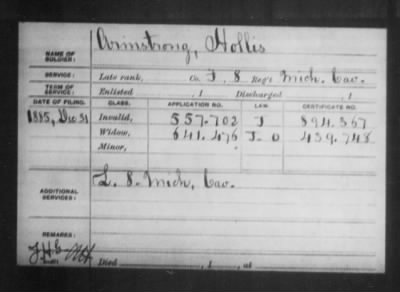 NAME OF SOLDIER: Armstrong, Hollis
SERVICE: Late rank, Co. F, 8 Reg't Mich. Cav.
TERM OF SERVICE: Enlisted , 1 Discharged , 1
DATE OF FILING. CLASS. APPLICATION NO. LAW. CERTIFICATE NO.
1885, Dec 31 Invalid, 557.702 J 394.367
Widow, 641.476 J-O 439.748
Minor,
ADDITIONAL SERVICES: L. 8. Mich, Cav.
REMARKS:
Died , 1 , at